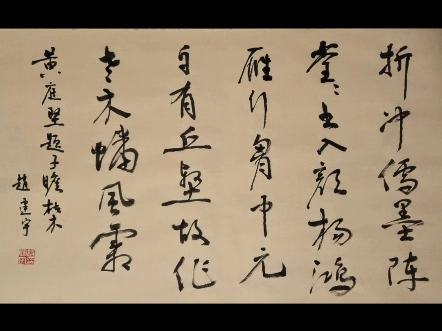 折冲儒墨陈
堂〻书入颜杨鸿
雁行胸中元
自有丘壑故作
老木蟠风霜
黄庭坚题子瞻枯木
赵建宇